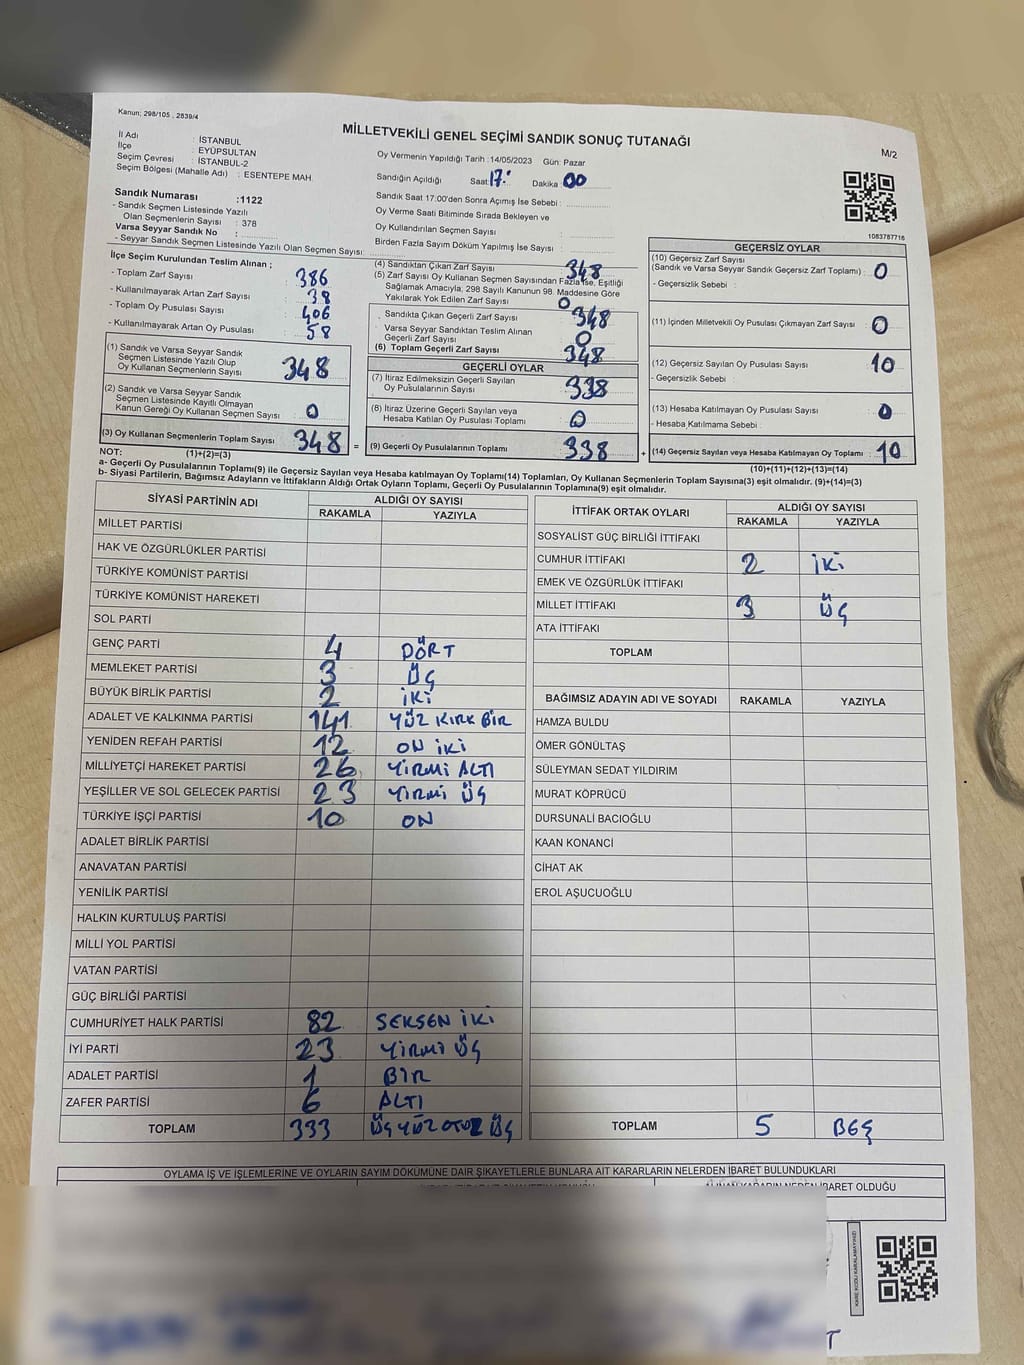 Kanun; 298/105 , 2839/4
MİLLETVEKİLİ GENEL SEÇİMİ SANDIK SONUÇ TUTANAĞI
M/2
İl Adı : İSTANBUL
İlçe : EYÜPSULTAN
Seçim Çevresi : İSTANBUL-2
Seçim Bölgesi (Mahalle Adı) : ESENTEPE MAH.
Oy Vermenin Yapıldığı Tarih :14/05/2023 Gün: Pazar
Sandığın Açıldığı Saat: 17: Dakika: 00
Sandık Saat 17:00'den Sonra Açımış İse Sebebi :
Oy Verme Saati Bitiminde Sırada Bekleyen ve
Oy Kullandırılan Seçmen Sayısı :
Birden Fazla Sayım Döküm Yapılmış İse Sayısı :
Sandık Numarası :1122
- Sandık Seçmen Listesinde Yazılı
Olan Seçmenlerin Sayısı : 378
Varsa Seyyar Sandık No :
- Seyyar Sandık Seçmen Listesinde Yazılı Olan Seçmen Sayısı:
1083787716
İlçe Seçim Kurulundan Teslim Alınan ;
- Toplam Zarf Sayısı : 386
- Kullanılmayarak Artan Zarf Sayısı : 38
- Toplam Oy Pusulası Sayısı : 406
- Kullanılmayarak Artan Oy Pusulası : 58
(1) Sandık ve Varsa Seyyar Sandık
Seçmen Listesinde Yazılı Olup
Oy Kullanan Seçmenlerin Sayısı : 348
(2) Sandık ve Varsa Seyyar Sandık
Seçmen Listesinde Kayıtlı Olmayan
Kanun Gereği Oy Kullanan Seçmen Sayısı : 0
(3) Oy Kullanan Seçmenlerin Toplam Sayısı : 348
(4) Sandıktan Çıkan Zarf Sayısı : 348
(5) Zarf Sayısı Oy Kullanan Seçmen Sayısından Fazla İse, Eşitliği
Sağlamak Amacıyla, 298 Sayılı Kanunun 98. Maddesine Göre
Yakılarak Yok Edilen Zarf Sayısı : 0
Sandıkta Çıkan Geçerli Zarf Sayısı : 348
Varsa Seyyar Sandıktan Teslim Alınan
Geçerli Zarf Sayısı : 0
(6) Toplam Geçerli Zarf Sayısı : 348
GEÇERLİ OYLAR
(7) İtiraz Edilmeksizin Geçerli Sayılan
Oy Pusulalarının Sayısı : 338
(8) İtiraz Üzerine Geçerli Sayılan veya
Hesaba Katılan Oy Pusulası Toplamı : 0
= (9) Geçerli Oy Pusulalarının Toplamı : 338
GEÇERSİZ OYLAR
(10) Geçersiz Zarf Sayısı
(Sandık ve Varsa Seyyar Sandık Geçersiz Zarf Toplamı) : 0
- Geçersizlik Sebebi :
(11) İçinden Milletvekili Oy Pusulası Çıkmayan Zarf Sayısı : 0
(12) Geçersiz Sayılan Oy Pusulası Sayısı : 10
- Geçersizlik Sebebi :
(13) Hesaba Katılmayan Oy Pusulası Sayısı : 0
- Hesaba Katılmama Sebebi :
+ (14) Geçersiz Sayılan veya Hesaba Katılmayan Oy Toplamı : 10
NOT: (1)+(2)=(3) (10)+(11)+(12)+(13)=(14)
a- Geçerli Oy Pusulalarının Toplamı(9) ile Geçersiz Sayılan veya Hesaba katılmayan Oy Toplamı(14) Toplamları, Oy Kullanan Seçmenlerin Toplam Sayısına(3) eşit olmalıdır. (9)+(14)=(3)
b- Siyasi Partilerin, Bağımsız Adayların ve İttifakların Aldığı Ortak Oyların Toplamı, Geçerli Oy Pusulalarının Toplamına(9) eşit olmalıdır.
SİYASİ PARTİNİN ADI ALDIĞI OY SAYISI
RAKAMLA YAZIYLA
MİLLET PARTİSİ
HAK VE ÖZGÜRLÜKLER PARTİSİ
TÜRKİYE KOMÜNİST PARTİSİ
TÜRKİYE KOMÜNİST HAREKETİ
SOL PARTİ
GENÇ PARTİ 4 DÖRT
MEMLEKET PARTİSİ 3 ÜÇ
BÜYÜK BİRLİK PARTİSİ 2 İKİ
ADALET VE KALKINMA PARTİSİ 141 YÜZ KIRK BİR
YENİDEN REFAH PARTİSİ 12 ON İKİ
MİLLİYETÇİ HAREKET PARTİSİ 26 YİRMİ ALTI
YEŞİLLER VE SOL GELECEK PARTİSİ 23 YİRMİ ÜÇ
TÜRKİYE İŞÇİ PARTİSİ 10 ON
ADALET BİRLİK PARTİSİ
ANAVATAN PARTİSİ
YENİLİK PARTİSİ
HALKIN KURTULUŞ PARTİSİ
MİLLİ YOL PARTİSİ
VATAN PARTİSİ
GÜÇ BİRLİĞİ PARTİSİ
CUMHURİYET HALK PARTİSİ 82 SEKSEN İKİ
İYİ PARTİ 23 YİRMİ ÜÇ
ADALET PARTİSİ 1 BİR
ZAFER PARTİSİ 6 ALTI
TOPLAM 333 ÜÇ YÜZ OTUZ ÜÇ
İTTİFAK ORTAK OYLARI ALDIĞI OY SAYISI
RAKAMLA YAZIYLA
SOSYALİST GÜÇ BİRLİĞİ İTTİFAKI
CUMHUR İTTİFAKI 2 İKİ
EMEK VE ÖZGÜRLÜK İTTİFAKI
MİLLET İTTİFAKI 3 ÜÇ
ATA İTTİFAKI
TOPLAM
BAĞIMSIZ ADAYIN ADI VE SOYADI RAKAMLA YAZIYLA
HAMZA BULDU
ÖMER GÖNÜLTAŞ
SÜLEYMAN SEDAT YILDIRIM
MURAT KÖPRÜCÜ
DURSUNALİ BACIOĞLU
KAAN KONANCİ
CİHAT AK
EROL AŞUCUOĞLU
TOPLAM 5 BEŞ
OYLAMA İŞ VE İŞLEMLERİNE VE OYLARIN SAYIM DÖKÜMÜNE DAİR ŞİKAYETLERLE BUNLARA AİT KARARLARIN NELERDEN İBARET BULUNDUKLARI
ALINAN KARARIN NEDEN İBARET OLDUĞU
KARE KODU KARALAMAYINIZ!